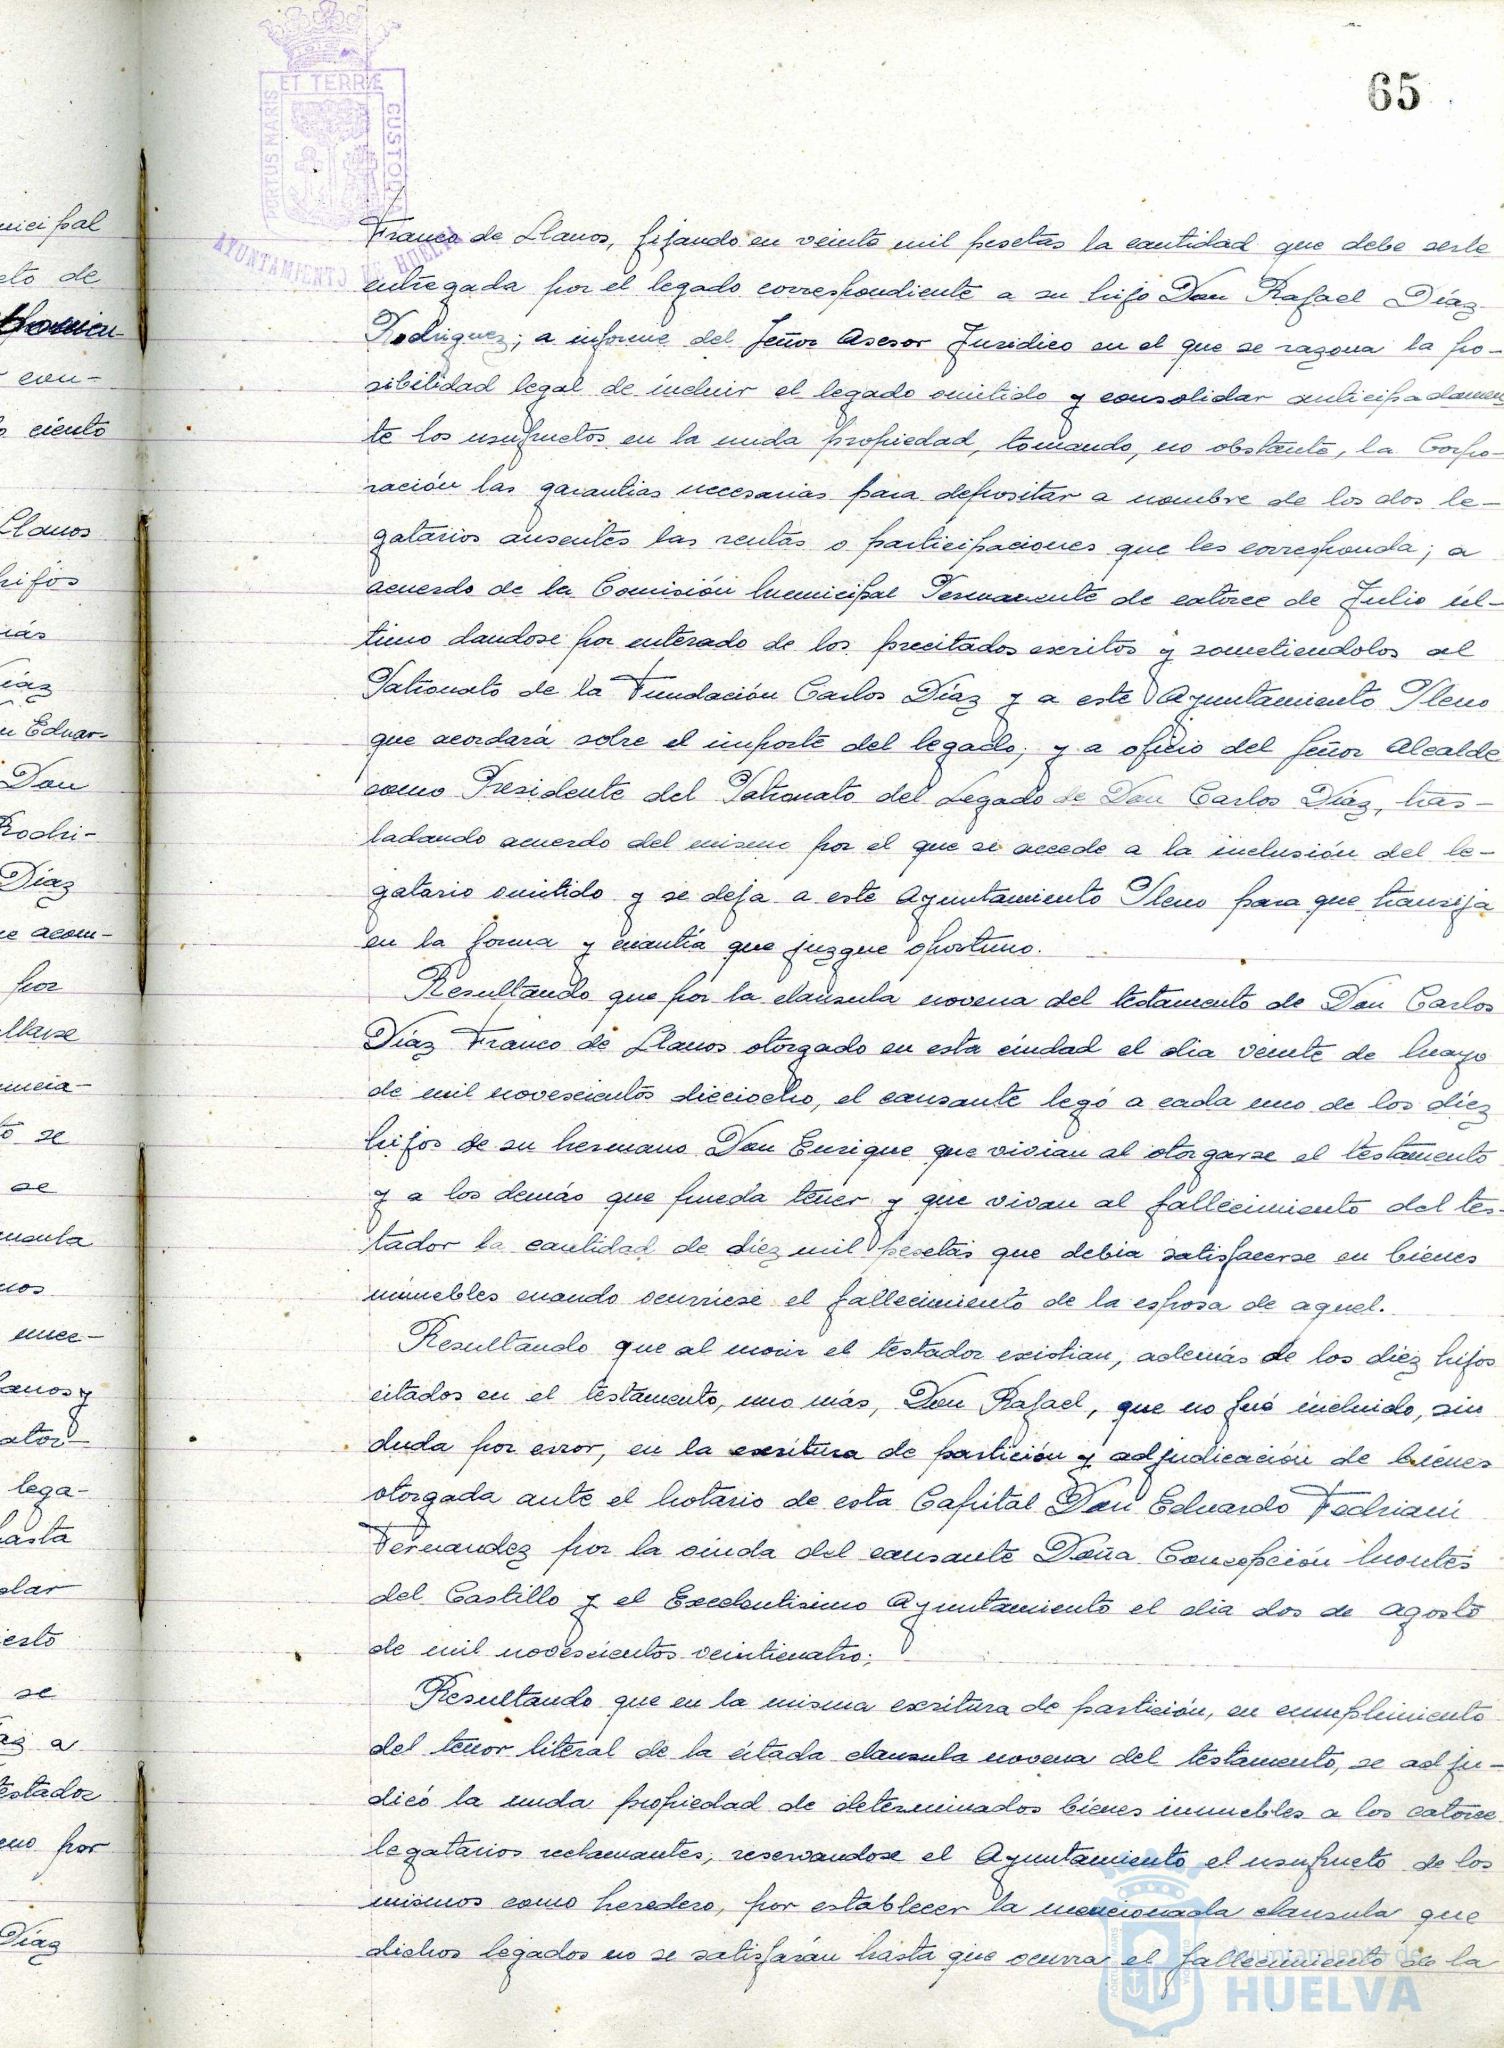 65
PORTUS MARIS ET TERRÆ CUSTODIA
AYUNTAMIENTO DE HUELVA
Franco de Llanos, fijando en veinte mil pesetas la cantidad que debe serle
entregada por el legado correspondiente a su hijo Don Rafael Díaz
Rodriguez; a informe del Señor Asesor Juridico en el que se razona la po-
sibilidad legal de incluir el legado omitido y consolidar anticipadamen
te los usufructos en la nuda propiedad, tomando, no obstante, la Corpo-
ración las garantias necesarias para depositar a nombre de los dos le-
gatarios ausentes las rentas o participaciones que les corresponda; a
acuerdo de la Comisión Municipal Permanente de catorce de Julio úl-
timo dandose por enterado de los precitados escritos y sometiendolos al
Patronato de la Fundación Carlos Díaz y a este Ayuntamiento Pleno
que acordará sobre el importe del legado; y a oficio del Señor Alcalde
como Presidente del Patronato del Legado de Don Carlos Díaz, tras-
ladando acuerdo del mismo por el que se accede a la inclusión del le-
gatario omitido y se deja a este Ayuntamiento Pleno para que transija
en la forma y cuantía que juzgue oportuno.
Resultando que por la clausula novena del testamento de Don Carlos
Díaz Franco de Llanos otorgado en esta ciudad el dia veinte de Mayo
de mil novescientos dieciocho, el causante legó a cada uno de los diez
hijos de su hermano Don Enrique que vivian al otorgarse el testamento
y a los demás que pueda tener y que vivan al fallecimiento del tes-
tador la cantidad de diez mil pesetas que debia satisfacerse en bienes
inmuebles cuando ocurriese el fallecimiento de la esposa de aquel.
Resultando que al morir el testador existian, además de los diez hijos
citados en el testamento, uno más, Don Rafael, que no fué incluido, sin
duda por error, en la escritura de partición y adjudicación de bienes
otorgada ante el Notario de esta Capital Don Eduardo Fedriani
Fernandez por la viuda del causante Doña Concepción Montes
del Castillo y el Excelentisimo Ayuntamiento el dia dos de agosto
de mil novescientos veinticuatro;
Resultando que en la misma escritura de partición, en cumplimiento
del tenor literal de la citada clausula novena del testamento, se adju-
dicó la nuda propiedad de determinados bienes inmuebles a los catorce
legatarios reclamantes, reservandose el Ayuntamiento el usufructo de los
mismos como heredero, por establecer la mencionada clausula que
dichos legados no se satisfarán hasta que ocurra el fallecimiento de la
Ayuntamiento de
HUELVA